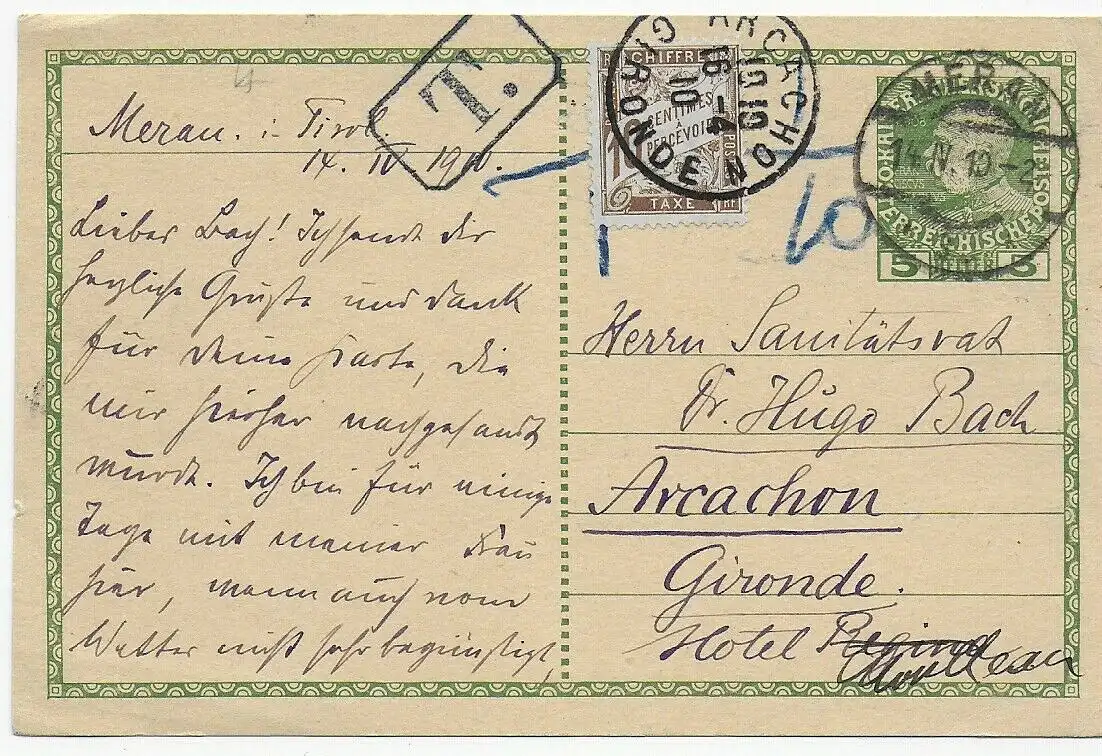 T.
CHIFFRE
CENTIMES
À
PERCEVOIR
POSTES
TAXE
RF
ARCACHON
1910
16-4
10
GIRONDE
MERAN
14.IV.10.-2
5
10
Meran. i. Tirol.
14. IV 1910.
Lieber Bach! Ich sende dir
herzliche Grüße und Dank
für deine Karte, die
mir hierher nachgesandt
wurde. Ich bin für einige
Tage mit meiner Frau
hier, wenn auch vom
Wetter nicht sehr begünstigt,
Herrn Sanitätsrat
Dr. Hugo Bach
Arcachon
Gironde.
Hotel Regina